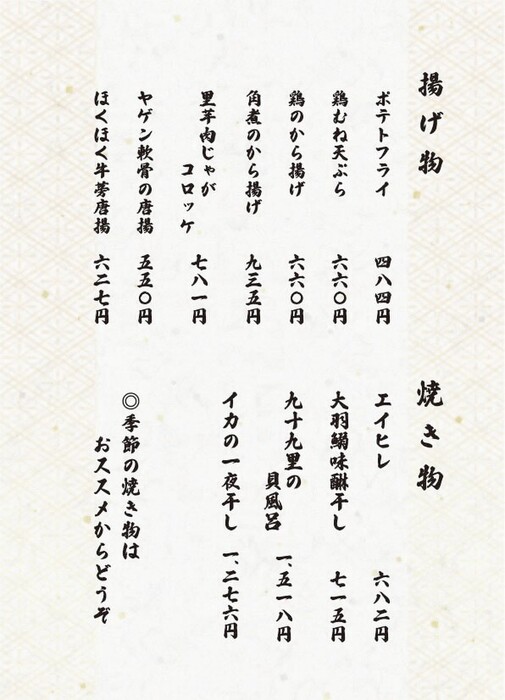 揚げ物
ポテトフライ 四八四円
鶏むね天ぷら 六六〇円
鶏のから揚げ 六六〇円
角煮のから揚げ 九三五円
里芋肉じゃが
コロッケ 七八一円
ヤゲン軟骨の唐揚 五五〇円
ほくほく牛蒡唐揚 六二七円
焼き物
エイヒレ 六八二円
大羽鰯味醂干し 七一五円
九十九里の
貝風呂 一、五一八円
イカの一夜干し 一、二七六円
◎季節の焼き物は
おススメからどうぞ